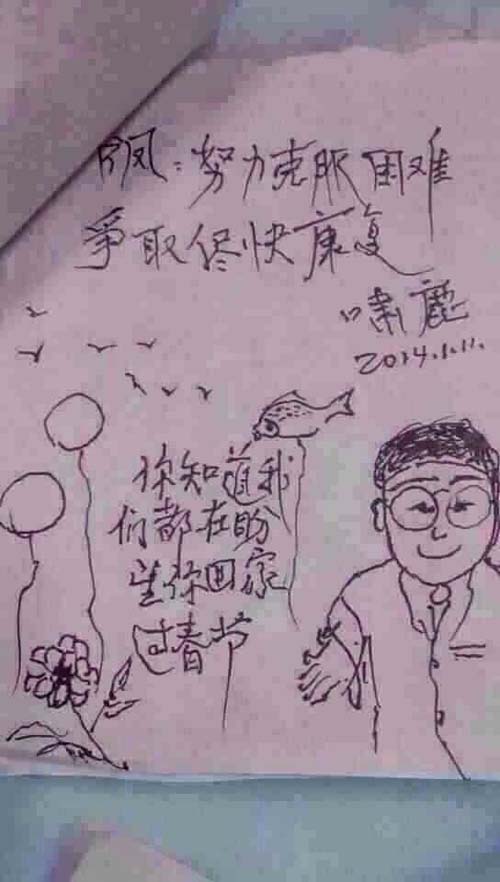 凤：努力克服困难
爭取侭快康复
2014.1.11.
你知道我
们都在盼
望你回家
过春节